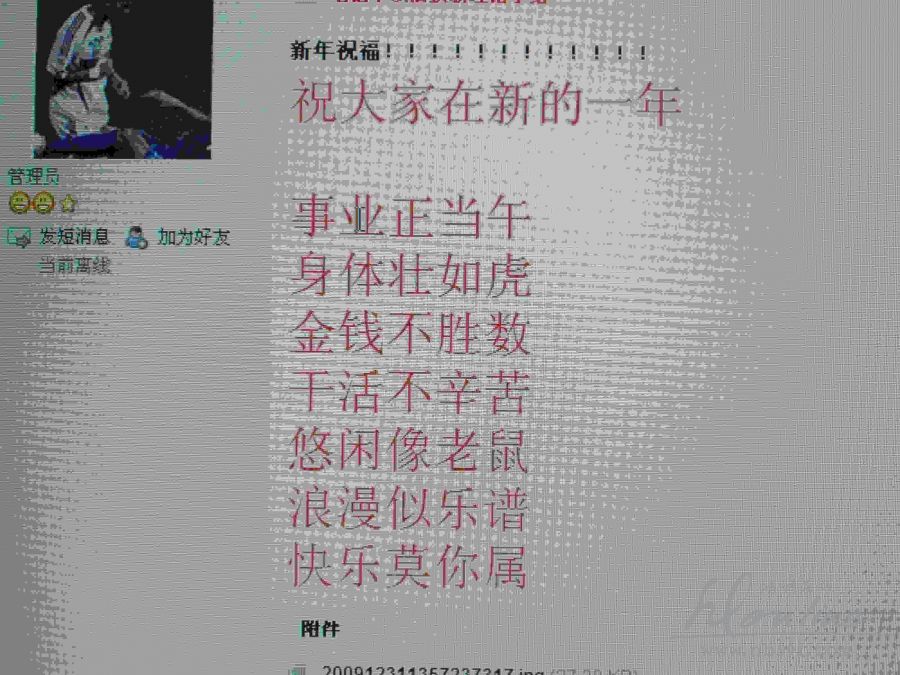 新年祝福！！！！！！！！！！！！
祝大家在新的一年
管理员
事业正当午
发短消息 加为好友
身体壮如虎
当前离线
金钱不胜数
干活不辛苦
悠闲像老鼠
浪漫似乐谱
快乐莫你属
附件